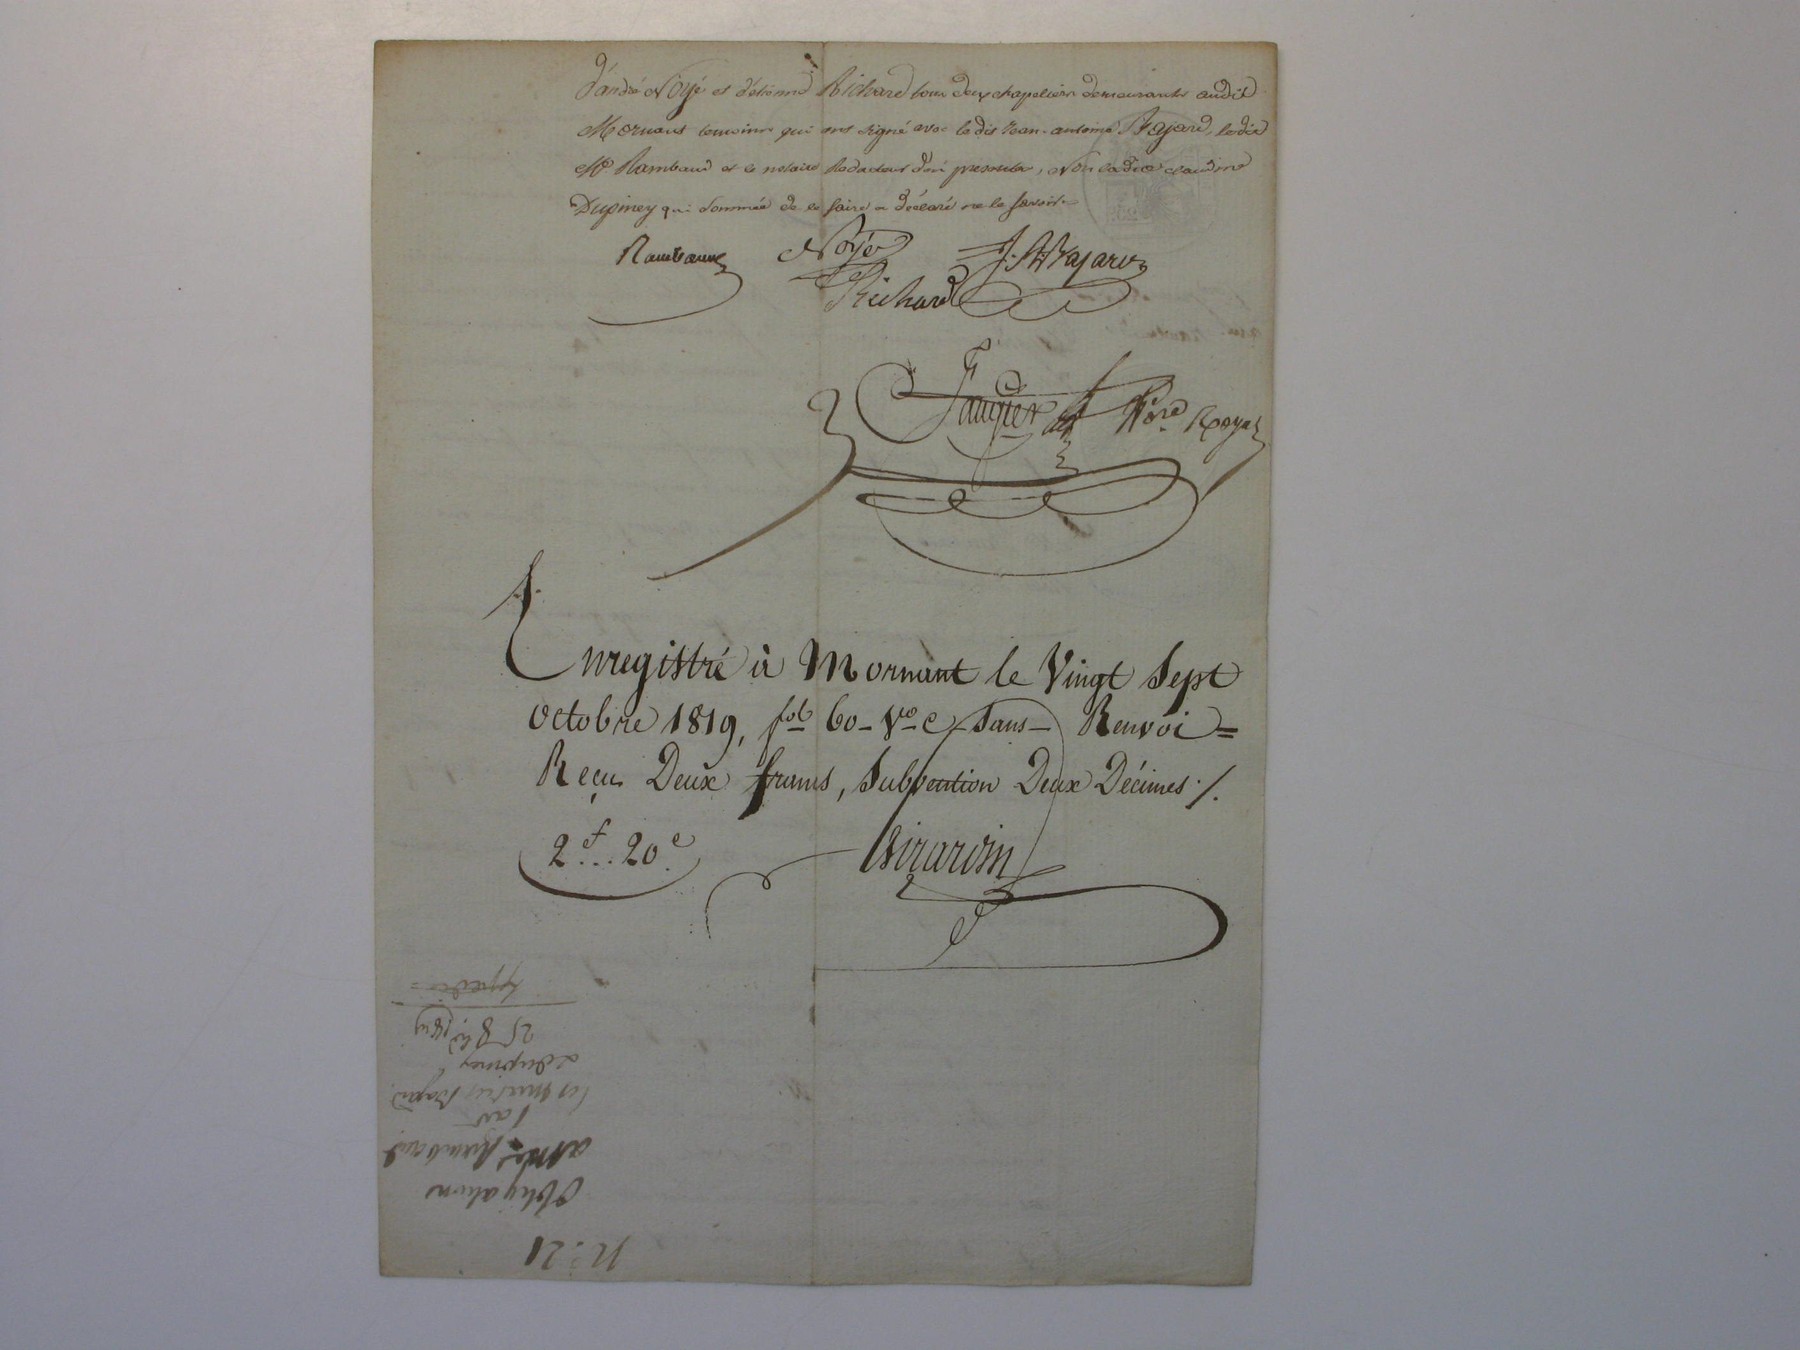 d'andré Noyé et d'étienne Richard tous deux chapeliers demeurants audit
Mornant temoins qui ont signé avec le dit Jean-antoine Bajard, ledit
Me Rambaud et le notaire Redacteur des presentes, Non ladite claudine
Dupiney qui sommée de le faire a déclaré ne le savoir
Rambaud Noyé J. A. Bajard
Richard
Faugier Nore Royal
Enregistré à Mornant le Vingt Sept
octobre 1819, fol 60 Vo C Sans Renvoi =
Reçu Deux francs, Subvention Deux Décimes ./.
2f...20c Girardin
No. 21
Obligation
a Me Rambaud
Par
les mariés Bajard
& dupiney
25 8bre 1819
Expédiée =